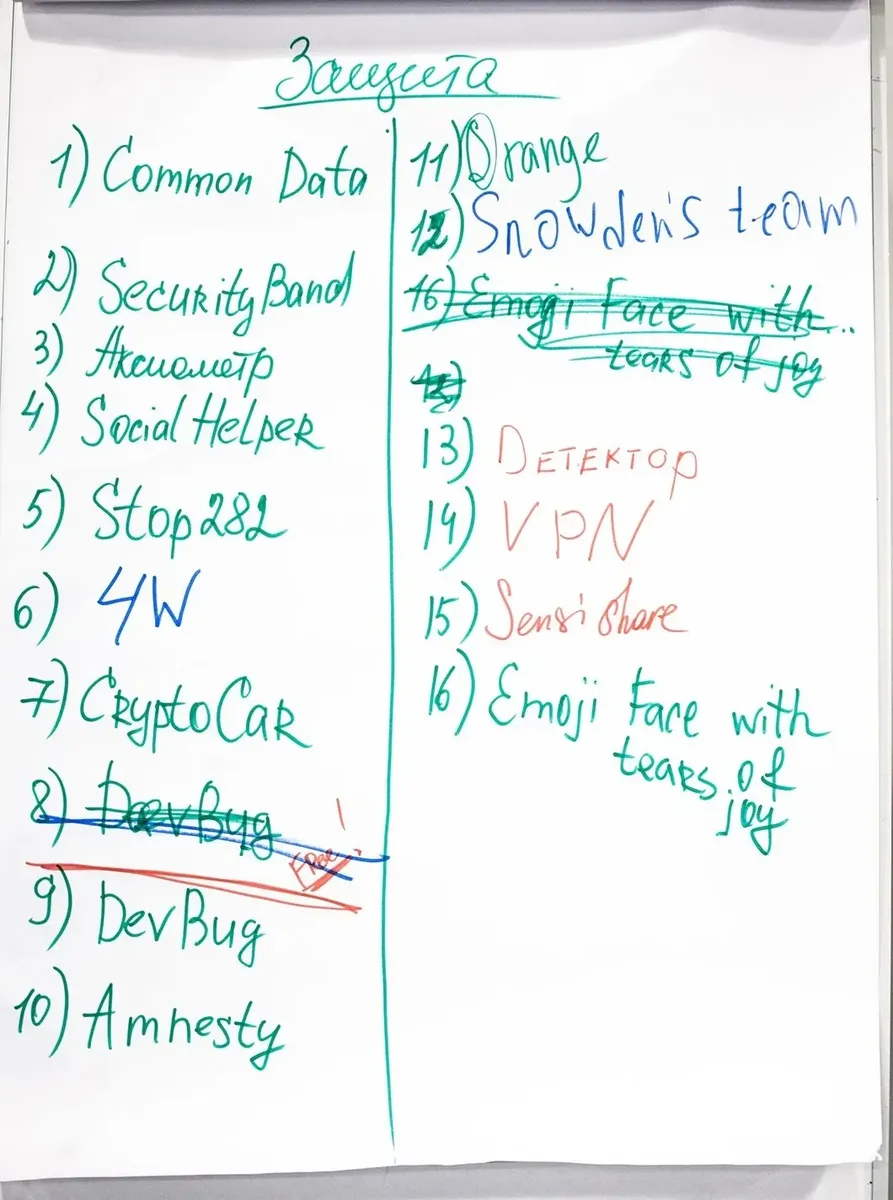 Защита
1) Common Data
2) SecurityBand
3) Аксиометр
4) Social Helper
5) Stop282
6) 4W
7) CryptoCar
8) DevBug
Free!
9) DevBug
10) Amnesty
11) Orange
12) Snowden's team
16) Emoji Face with...
tears of joy
13) Детектор
14) VPN
15) Sensishare
16) Emoji Face with
tears of
joy